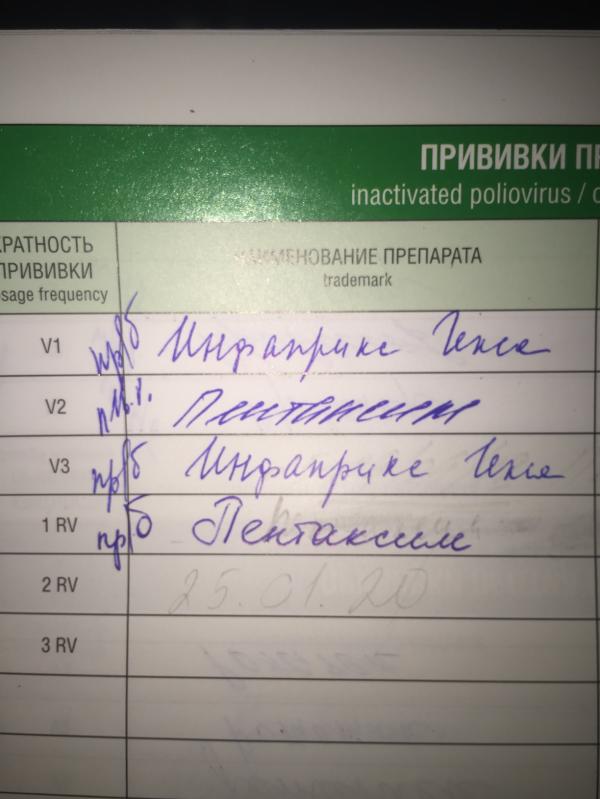 ПРИВИВКИ ПР
inactivated poliovirus / o
КРАТНОСТЬ
ПРИВИВКИ
osage frequency
НАИМЕНОВАНИЕ ПРЕПАРАТА
trademark
V1 пр/б Инфанрикс Гекса
V2 Пентаксим
V3 пр/б Инфанрикс Гекса
1 RV пр/б Пентаксим
2 RV 25.01.20
3 RV